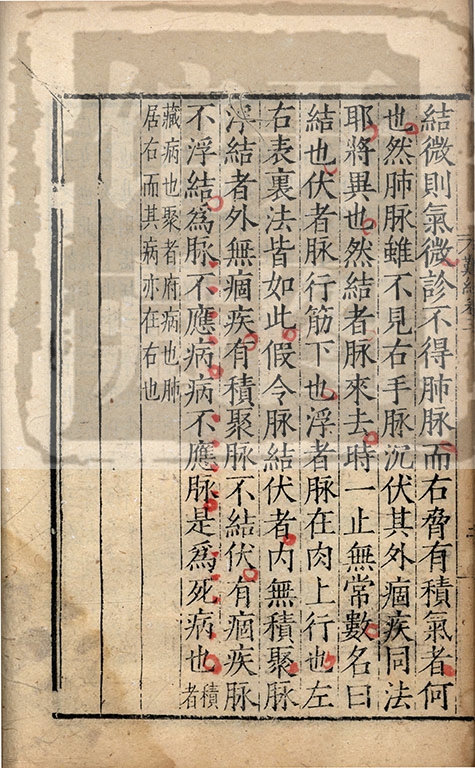 結微則氣微診不得肺脉而右脅有積氣者何
也然肺脉雖不見右手脉沉伏其外痼疾同法
耶將異也然結者脉來去時一止無常數名曰
結也伏者脉行筋下也浮者脉在肉上行也左
右表裏法皆如此假令脉結伏者內無積聚脉
浮結者外無痼疾有積聚脉不結伏有痼疾脉
不浮結為脉不應病病不應脉是為死病也積者
藏病也聚者府病也肺
居右而其病亦在右也